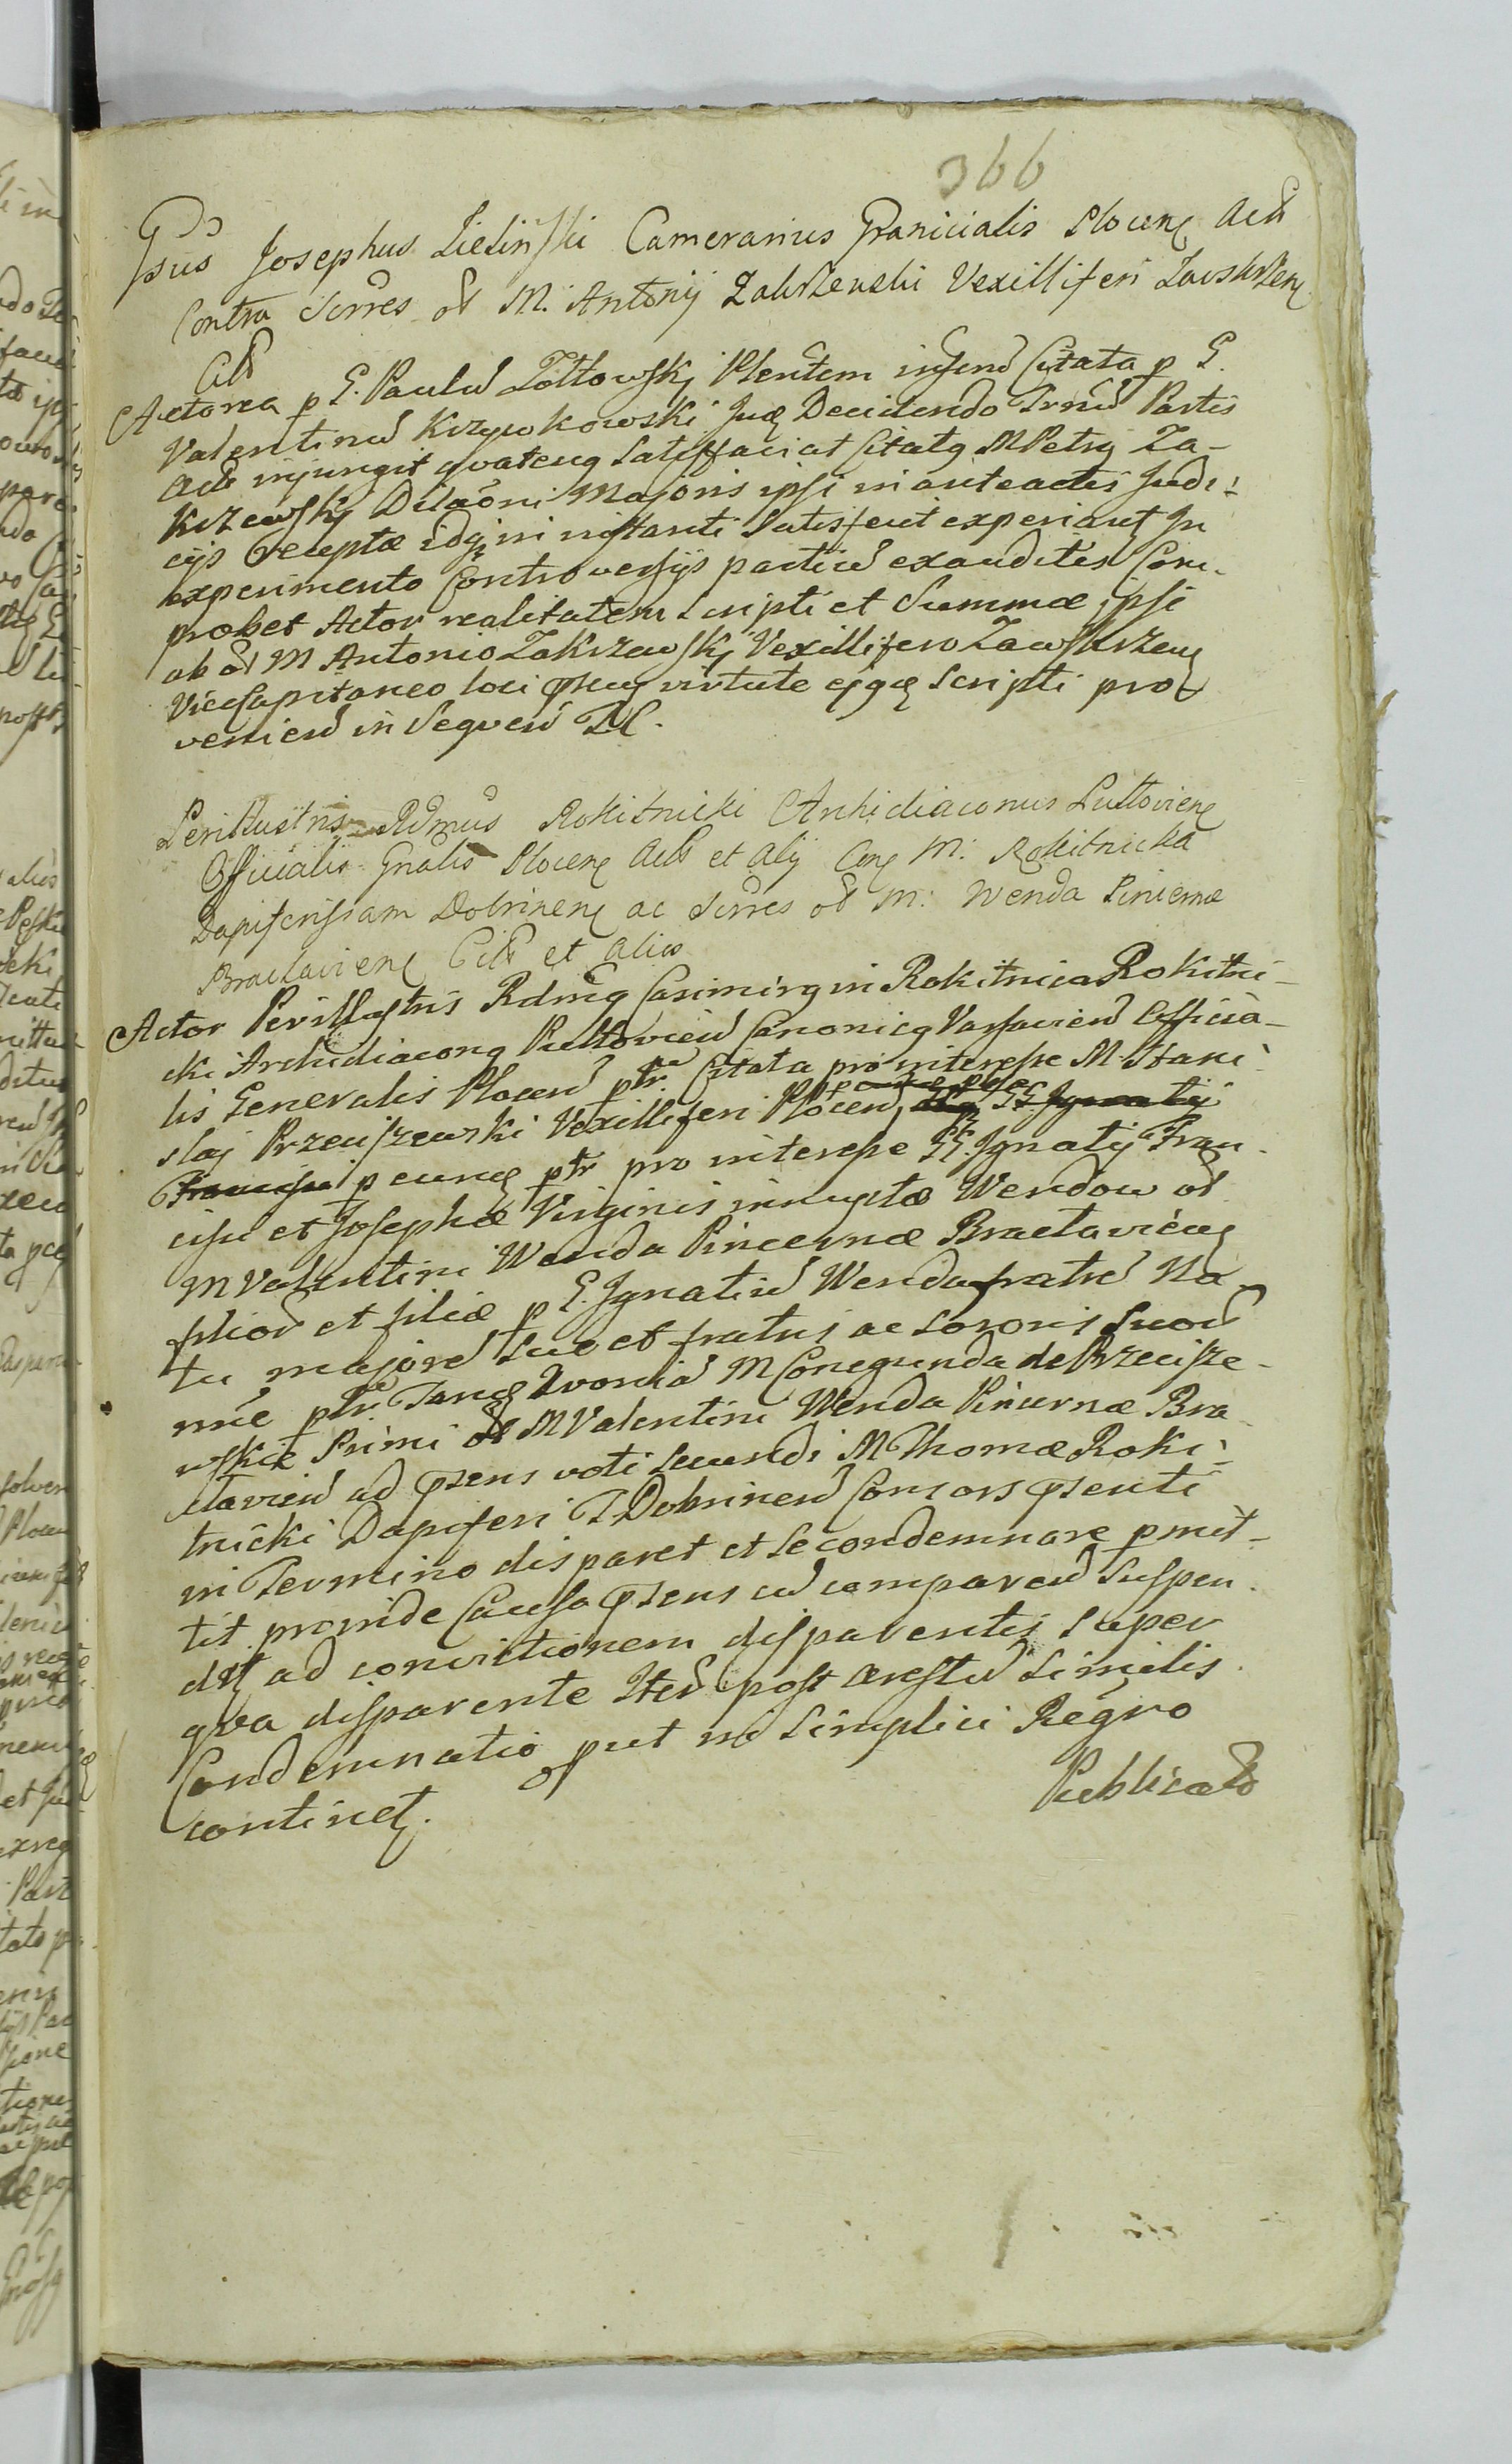 366
Gsus Josephus Zielinski Camerarius Granicialis Plocens Actr
Contra Sucres ol M. Antonij Zakrzewski Vexilliferi Zawskrzens
Citt
Actorea p G. Paulũ Zołtowskj Plentem inseruũ Citata p G.
Valentinũ Krzywkowski Jud Decidendo Trnũ Partis
Actr injungit quateng Satisfaciat Citatg M Petrg Za-
krzewskj Dilaõni Majoris ipsi in anteactis Judi-
cijs receptæ idqȝ in instanti Satisfecit experiant In
experimento Controversijs partiũ exauditis Com-
probet Actor realitatem Scripti et Summæ ipsi
ab ol M Antonio Zakrzewskj Vexillifero Zawskrzens
ViceCapitaneo loci psens virtute ejgd Scripti pro-
venien in Sequen TC.
Perillustris Rdmus Rokitnicki Archidiaconus Pultoviens
Officialis Gnalis Plocens Actr et alij Con M: Rokitnicka
Dapiferissam Dobrinens ac Sucres ol M: Wenda Pincernæ
Braclaviens Citt et alios
Actor Perillustris Rdmg Casimirg in Rokitnica Rokitni-
cki Archidiacong Pultovien Canonicg Varsavien Officia-
lis Generalis Plocen ptr. Citata pro interesse M Stani-
slaj Przeciszewski Vexilliferi Plocen GG Ignatij
Francisci p eund ptr pro interesse GG. Ignatij Fran-
cisci et Josephæ Virginis innuptæ Wendow ol
M Valentini Wenda Pincernæ Braclaviens
filior et filiæ p G. Ignatiũ Wenda fratrẽ Na-
tu majorẽ Suo et fratris ac Sororis Suor
nne ptr. Tand Avonia M Conegunda de Przecisze-
wskie Primi ol M Valentini Wenda Pincernæ Bra-
clavien ad psens voti Secundi M Thomæ Roki-
tnicki Dapiferi T Dobrinen Consors psenti
in Termino disparet et Se condemnare pmit-
tit proinde Causa psens cũ comparen Suspen-
dit ad convictionem disparentis Super
qva disparente Iterũ post arestũ Similis
Condemnatio put in Simplici Regro
continet.
Publicato